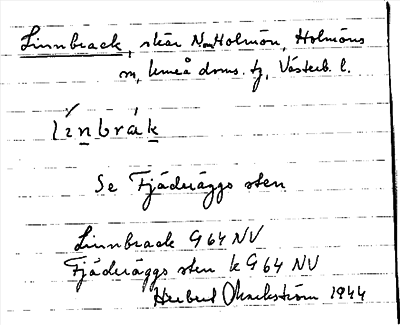 Linnbrack, skär N om Holmön, Holmöns
sn, Umeå doms. tg, Västerb. l.
línbrák
Se Fjäderäggs sten
Linnbrack G 64 NV
Fjäderäggs sten k G 64 NV
Herbert 1944